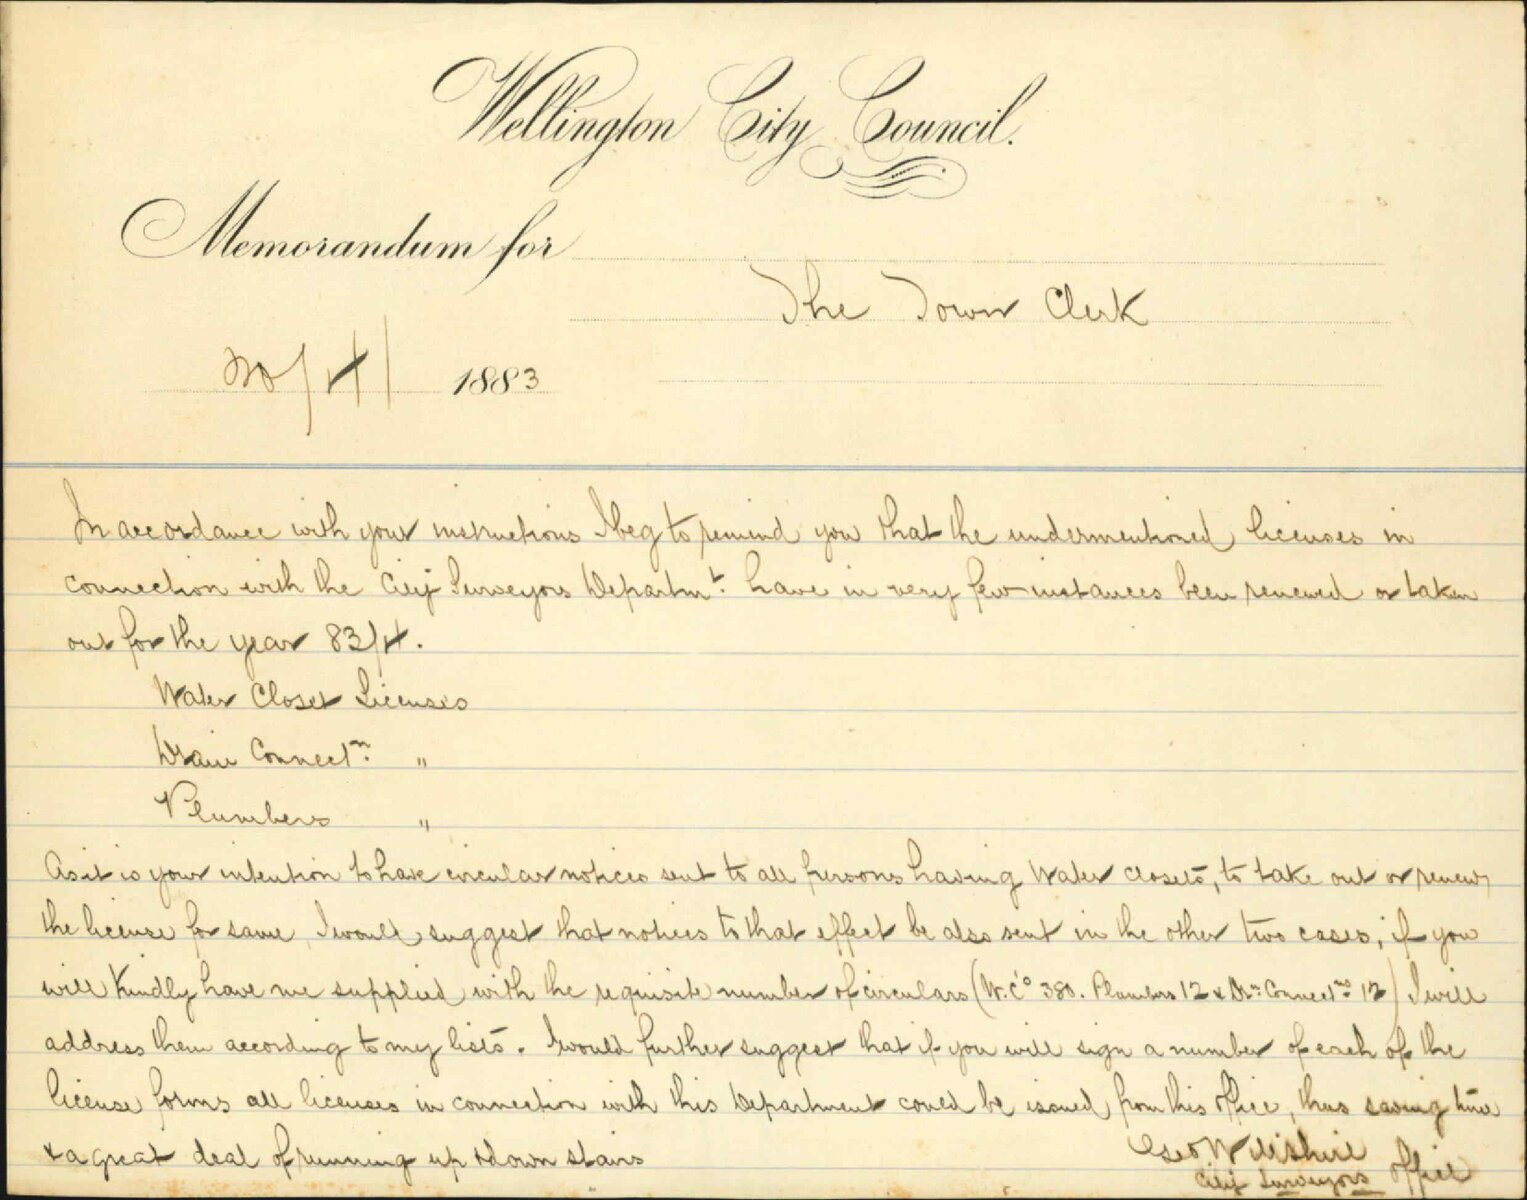 Wellington City Council.
Memorandum for
The Town Clerk
20/4/ 1883
In accordance with your instructions I beg to remind you that the undermentioned licenses in
connection with the City Surveyors Departmt. have in very few instances been renewed or taken
out for the year 83/4.
Water Closet Licenses
Drain Connectn. "
Plumbers "
As it is your intention to have circular notices sent to all persons having Water Closets, to take out or renew
the license for same, I would suggest that notices to that effect be also sent in the other two cases, if you
will kindly have me supplied with the requisite number of circulars (W.C.o 380. Plumbers 12 & Drn. Connectns 12) I will
address them according to my lists. I would further suggest that if you will sign a number of each of the
license forms all licenses in connection with this Department could be issued from this office, thus saving time
& a great deal of running up & down stairs
Geo Wiltshire
City Surveyors Office